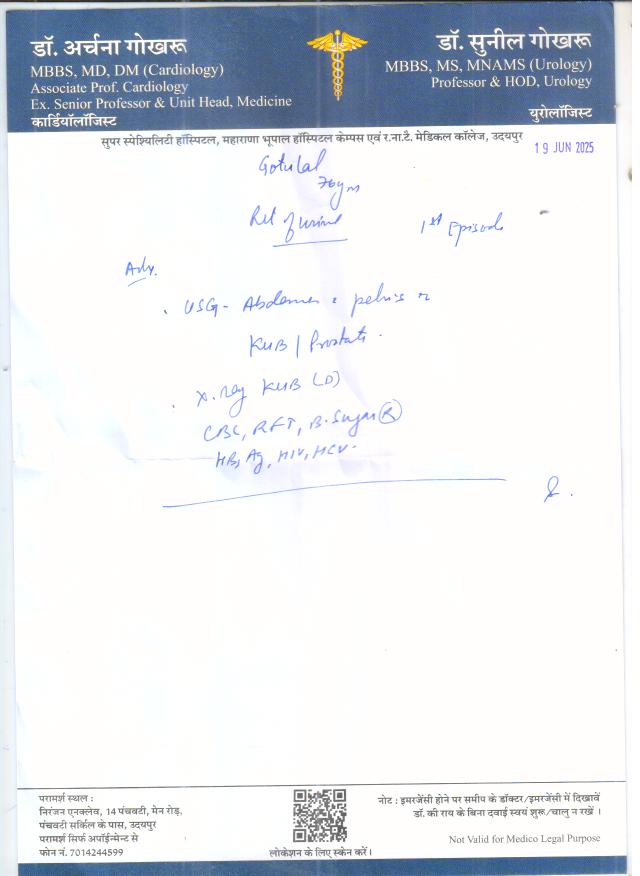 डॉ. अर्चना गोखरू
MBBS, MD, DM (Cardiology)
Associate Prof. Cardiology
Ex. Senior Professor & Unit Head, Medicine
कार्डियॉलॉजिस्ट
डॉ. सुनील गोखरू
MBBS, MS, MNAMS (Urology)
Professor & HOD, Urology
युरोलॉजिस्ट
सुपर स्पेश्यिलिटी हॉस्पिटल, महाराणा भूपाल हॉस्पिटल केम्पस एवं र.ना.टै. मेडिकल कॉलेज, उदयपुर
19 JUN 2025
Gotulal
70yrs
Ret of urine 1st Episode
Adv.
USG- Abdomen pelvis
KUB / Prostate.
X.Ray KUB (D)
CBC, RFT, B.Sugar (R)
HBsAg, HIV, HCV.
परामर्श स्थल :
निरंजन एनक्लेव, 14 पंचवटी, मेन रोड़.
पंचवटी सर्किल के पास, उदयपुर
परामर्श सिर्फ अपॉईन्मेन्ट से
फोन नं. 7014244599
लोकेशन के लिए स्केन करें।
नोट : इमरजेंसी होने पर समीप के डॉक्टर/इमरजेंसी में दिखावें
डॉ. की राय के बिना दवाई स्वयं शुरू/चालु न रखें ।
Not Valid for Medico Legal Purpose